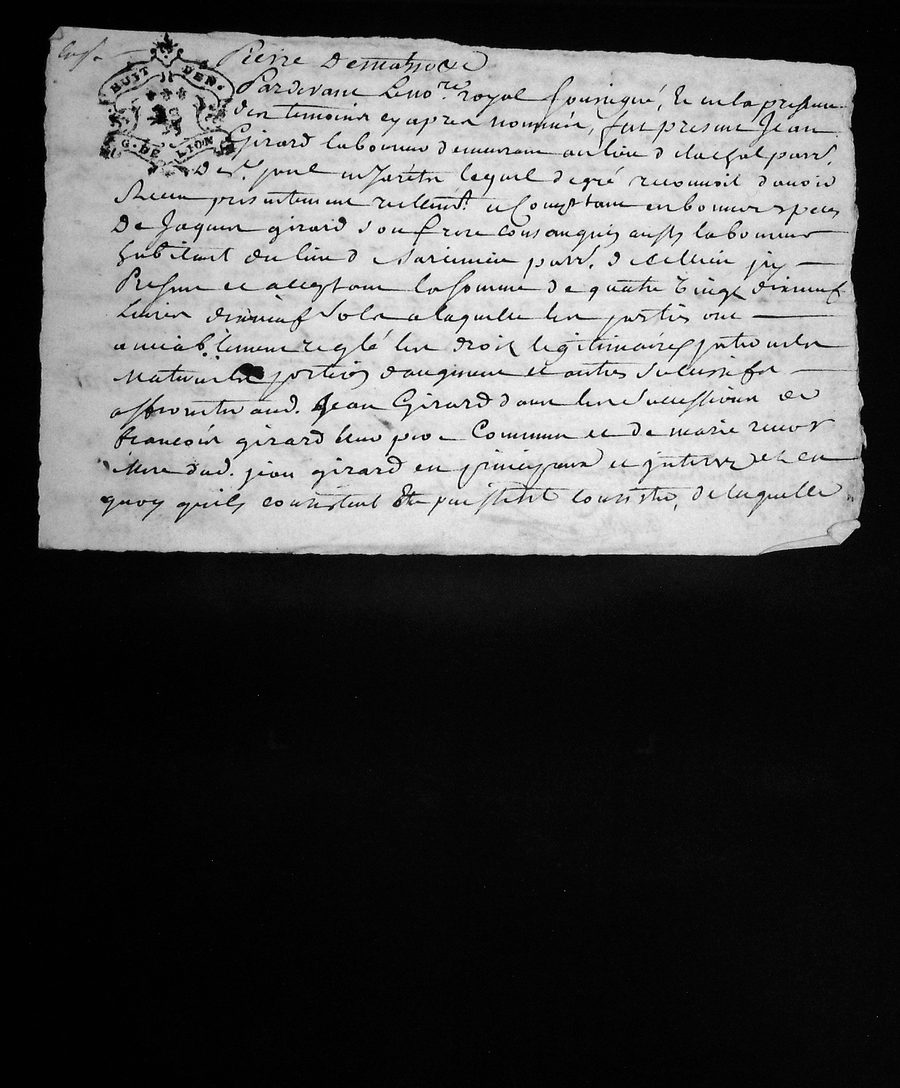 Pierre
HUIT DEN.
G. DE LION
Pardevant Le no.re royal soussigné, & en la presence
des temoins cy apres nommés, fut present Jean
Girard laboureur demeurant au lieu de parr.
De S.t paul en Jarêts lequel de gré reconnoit d'avoir
Receu presentement reellem.t et Comptant en bonnes especes
De Jaques girard son frere consanguin aussi laboureur
habitant du lieu de parr. de Cellieu jcy
Present et acceptant la somme de quatre vingt dixneuf
Livres dixneuf Sols a laquelle les parties ont
amiablement reglé les droits legitimaires paternels
Maternels portion d'augment et autres Successifs
aud. Jean Girard dans les Successions de
francois girard leur pere Commun et de marie
Mere dud. jean girard en principaux et jnterets et en
quoy quils consistent & puissent consister, de laquelle